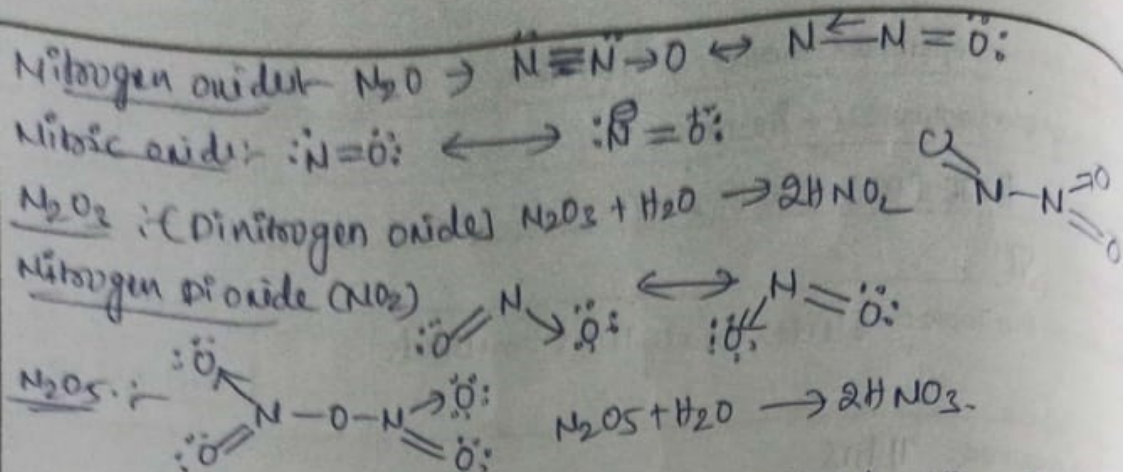 Nitrogen oxide:- N2O → N̈≡N̈→O ↔ N⇐N=Ö:
Nitric oxide:- :Ṅ=Ö: ⟷ :N=Ö:
N2O3 :(Dinitrogen oxide) N2O3 + H2O → 2HNO2 O=N–N=O =O
Nitrogen Dioxide (NO2) :Ö=N→Ö: ⟷ :Ö←N=Ö:
N2O5 :- :Ö←N–O–N→Ö: :Ö= =Ö: N2O5 + H2O → 2HNO3.